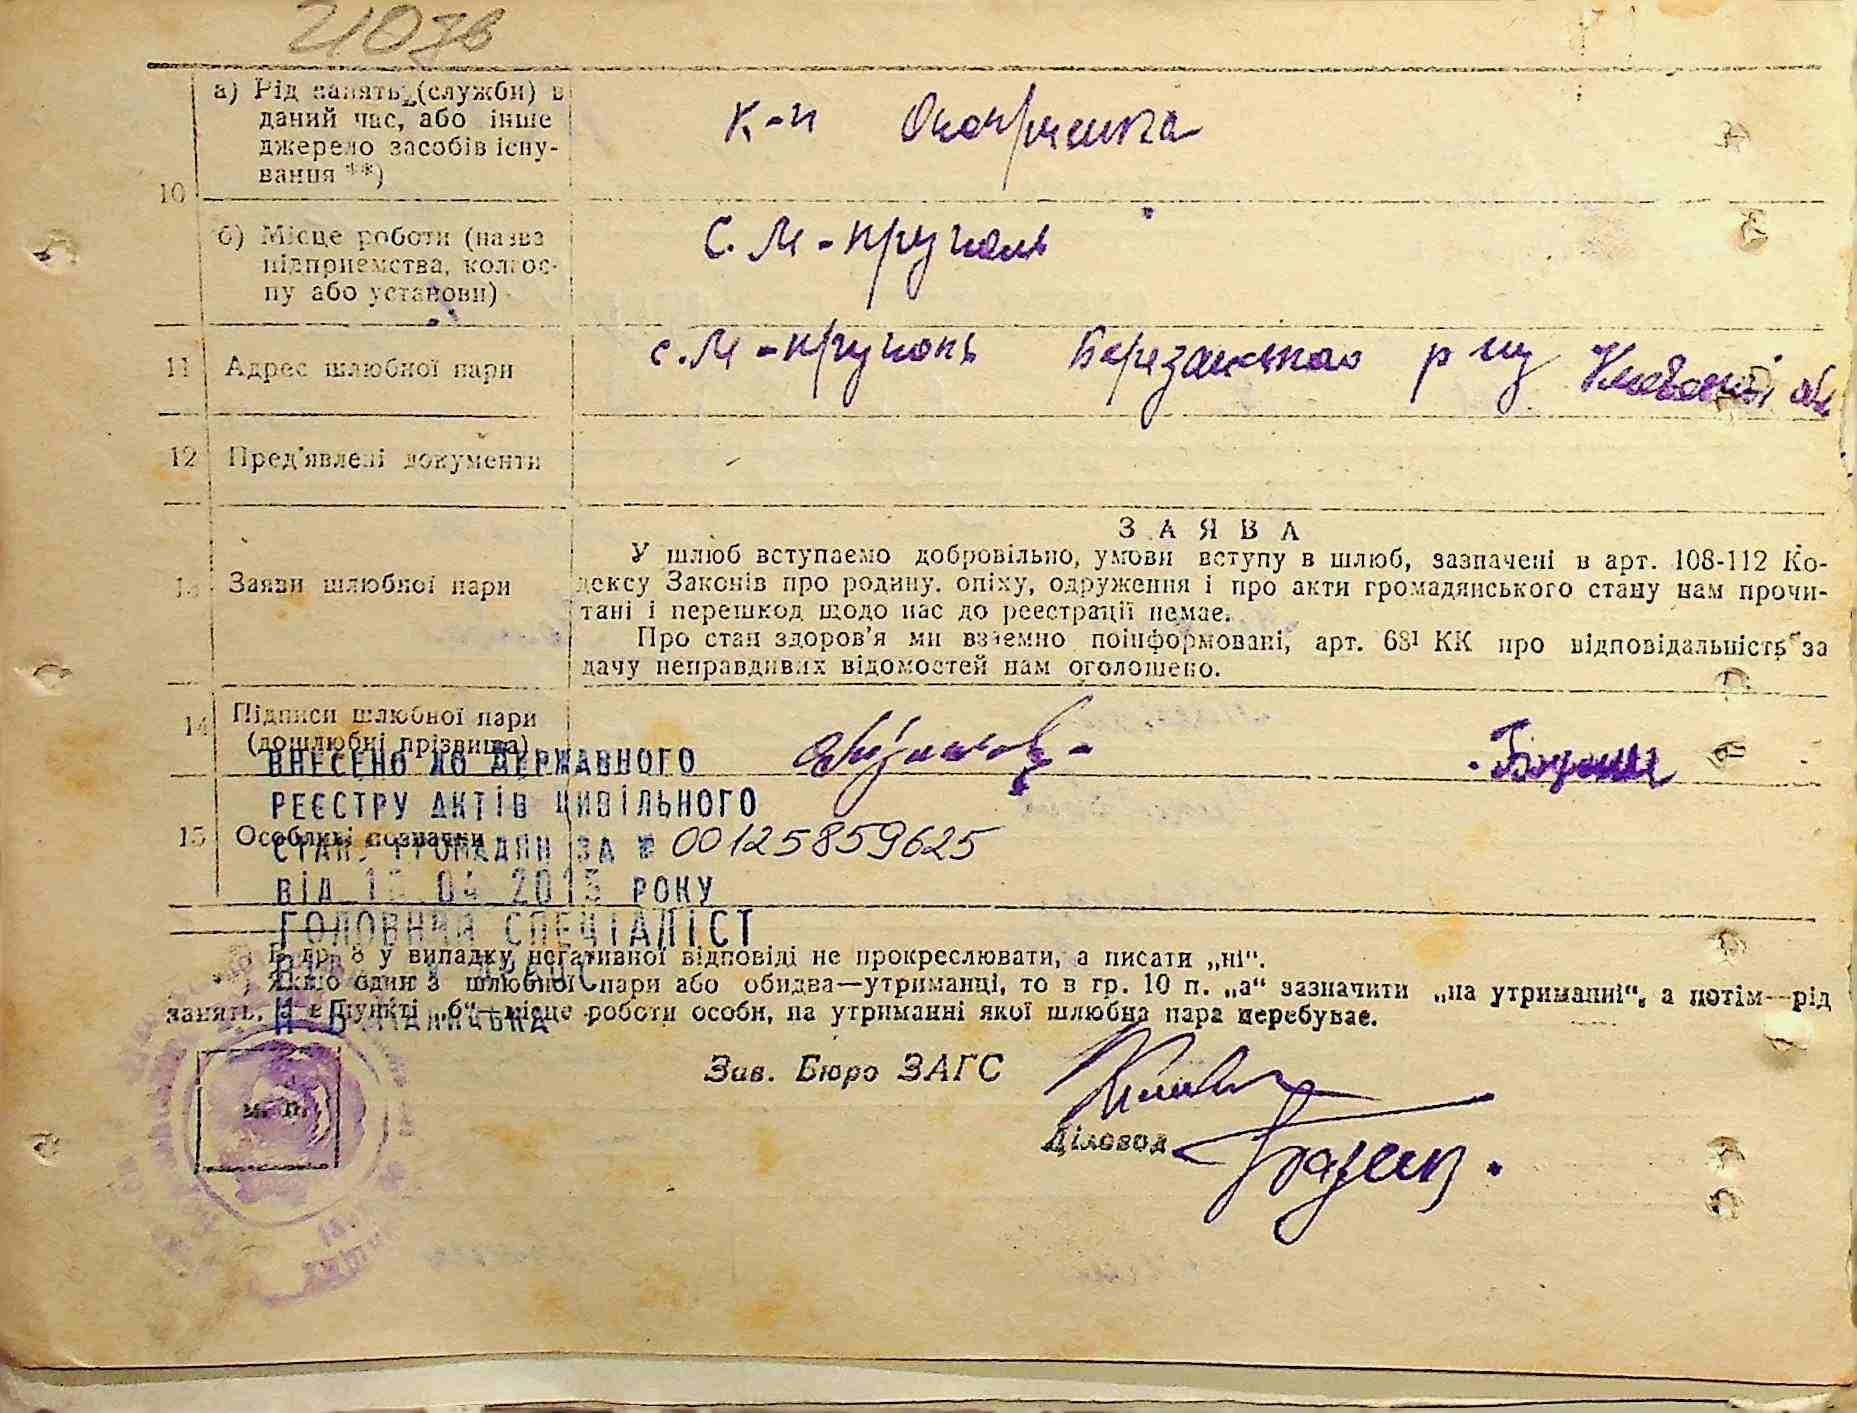 210зв
а) Рід занять (служби) в
даний час, або інше
джерело засобів існу-
вання **)
к-п
10
б) Місце роботи (назва
підприємства, колгос-
пу або установи)
с. М-круполь
11 Адрес шлюбної пари
с. М-круполь Березанського р-ну Київської обл
12 Пред'явлені документи
ЗАЯВА
У шлюб вступаємо добровільно, умови вступу в шлюб, зазначені в арт. 108-112 Ко-
13 Заяви шлюбної пари
дексу Законів про родину, опіку, одруження і про акти громадянського стану нам прочи-
тані і перешкод щодо нас до реєстрації немає.
Про стан здоров'я ми взаємно поінформовані, арт. 68¹ КК про відповідальність за
дачу неправдивих відомостей нам оголошено.
14 Підписи шлюбної пари
(дошлюбні прізвища)
ВНЕСЕНО ДО ДЕРЖАВНОГО
РЕЄСТРУ АКТІВ ЦИВІЛЬНОГО
15 Особливі позначки
СТАНУ ГРОМАДЯН ЗА № 00125859625
ВІД 04 2015 РОКУ
ГОЛОВНИЙ СПЕЦІАЛІСТ
В гр. 8 у випадку негативної відповіді не прокреслювати, а писати „ні“.
Якщо один з шлюбної пари або обидва—утриманці, то в гр. 10 п. „а“ зазначити „на утриманні“, а потім—рід
занять, а в пункті „б“—місце роботи особи, на утриманні якої шлюбна пара перебуває.
Зав. Бюро ЗАГС
М. П.
Діловод